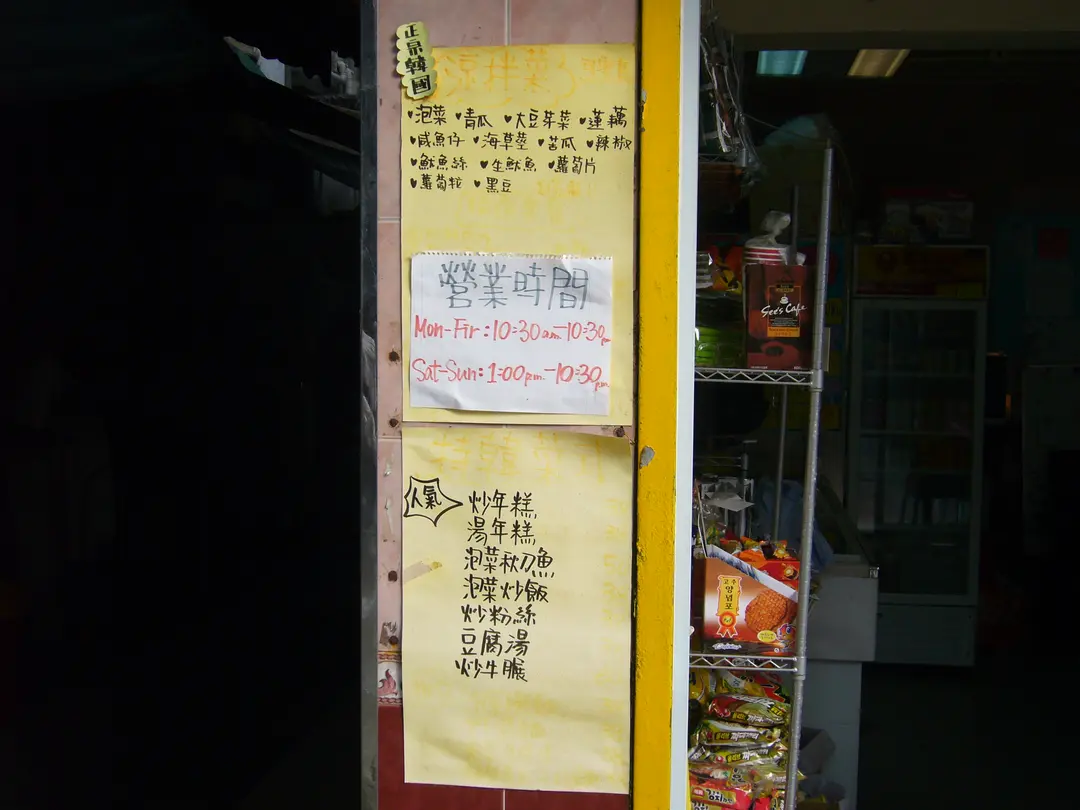 正宗韓國
涼拌菜
♥泡菜 ♥青瓜 ♥大豆芽菜 ♥蓮藕
♥咸魚仔 ♥海草莖 ♥苦瓜 ♥辣椒
♥魷魚絲 ♥生魷魚 ♥蘿蔔片
♥蘿蔔粒 ♥黑豆
營業時間
Mon-Fir:10:30am-10:30pm
Sat-Sun:1:00pm-10:30pm
人氣
炒年糕,
湯年糕,
泡菜秋刀魚
泡菜炒飯
炒粉絲
豆腐湯
炒牛𦟌
See's Cafe
고추
양념포